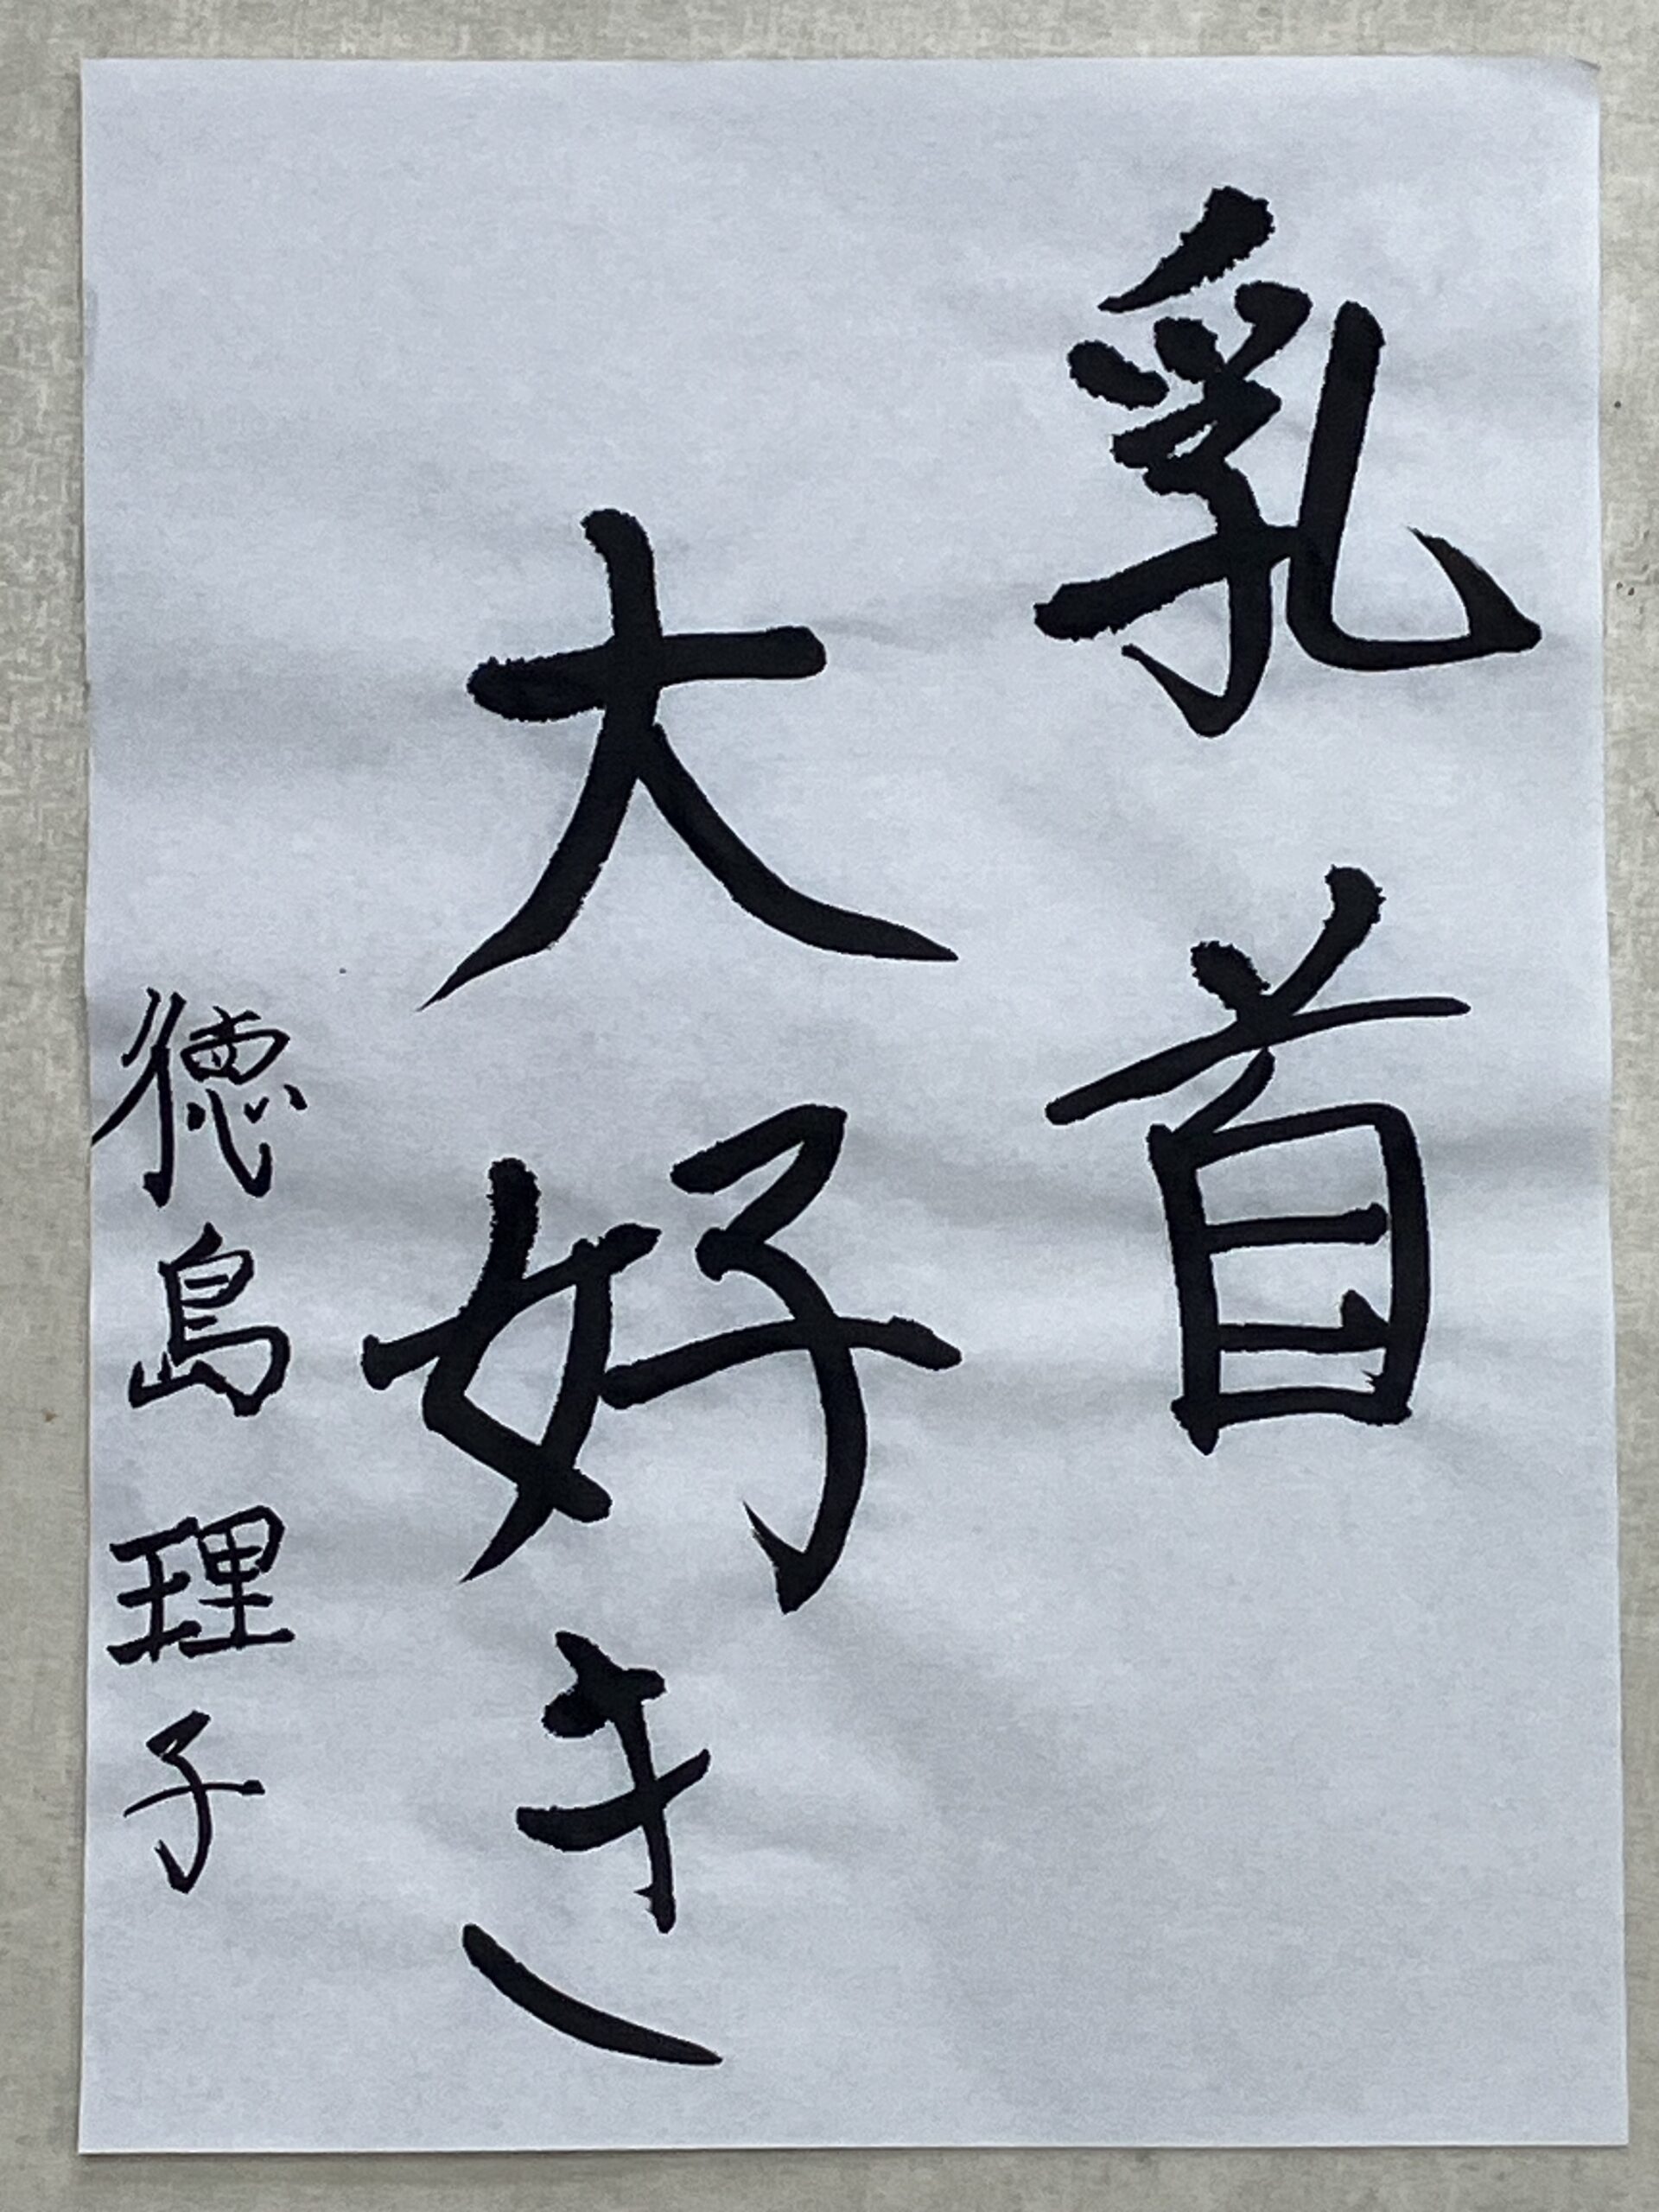 乳首
大好き
徳島理子